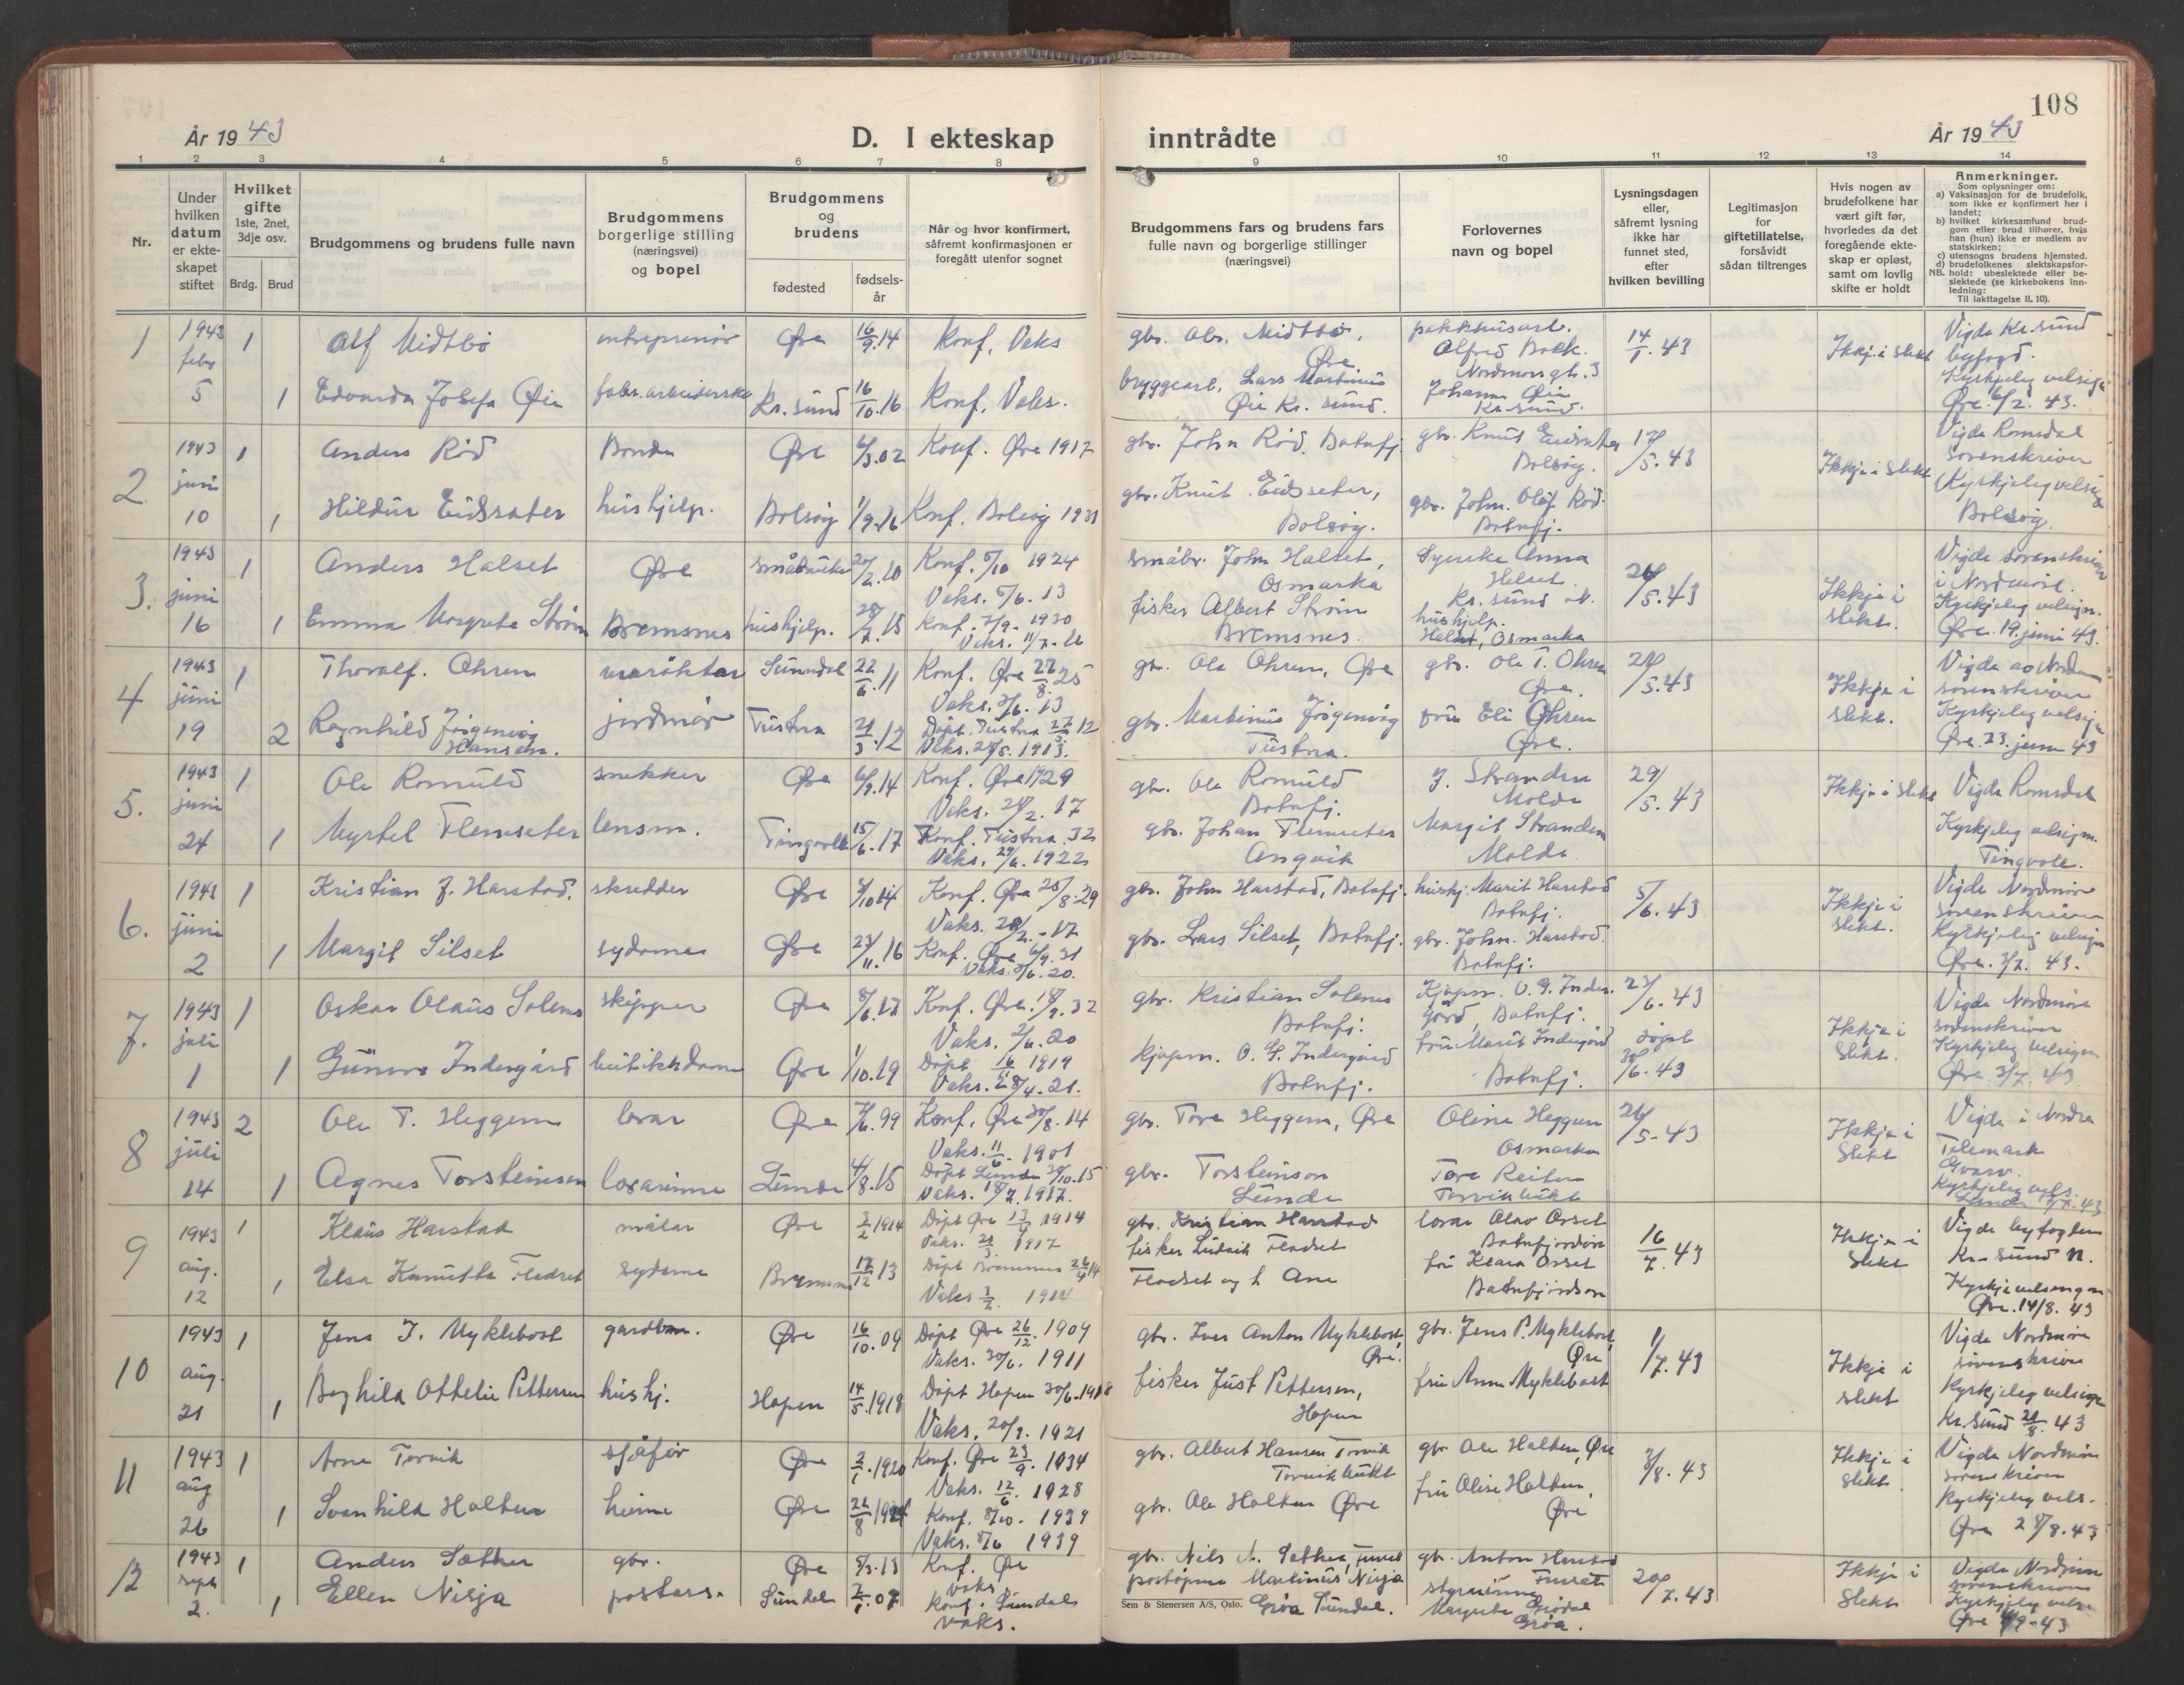 108
År 1943
D. I ekteskap inntrådte
År 1943
1 2 3 4 5 6 7 8 9 10 11 12 13 14
Nr.
Under hvilken datum er ekteskapet stiftet
Hvilket gifte 1ste, 2net, 3dje osv.
Brdg. Brud
Brudgommens og brudens fulle navn
Brudgommens borgerlige stilling (næringsvei) og bopel
Brudgommens og brudens
fødested
fødselsår
Når og hvor konfirmert, såfremt konfirmasjonen er foregått utenfor sognet
Brudgommens fars og brudens fars fulle navn og borgerlige stillinger (næringsvei)
Forlovernes navn og bopel
Lysningsdagen eller, såfremt lysning ikke har funnet sted, efter hvilken bevilling
Legitimasjon for giftetillatelse, forsåvidt sådan tiltrenges
Hvis nogen av brudefolkene har vært gift før, hvorledes da det foregående ekteskap er opløst, samt om lovlig skifte er holdt
Anmerkninger.
Som oplysninger om:
a) Vaksinasjon for de brudefolk, som ikke er konfirmert her i landet;
b) hvilket kirkesamfund brudgom eller brud tilhører, hvis han (hun) ikke er medlem av statskirken;
c) utensogns brudens hjemsted.
d) brudefolkenes slektskapsforhold: ubeslektede eller beslektede (se kirkebokens innledning:
NB.
Til iakttagelse II. 10).
1 1943 febr 5
1 Alf Midtbö entreprenör Øre 16/9.14 Konf. Vaks
gbr. Midtbö, Øre
pakkhusarb. Alfred Nordmørsgt. 3
14/1. 43
Ikkje i slekt
Vigde Kr.sund byfogd. Kyrkjeleg velsign Øre 6/2. 43.
1 Edvarda Josefa Øie fabr.arbeiderske Kr.sund 16/10.16 Konf. Vaks.
bryggearb. Lars Martinius Øie Kr.sund.
Johann Øie Kr.sund.
2. 1943 juni 10
1 Anders Röd Bonde Øre 6/3.02 Konf. Øre 1917
gbr. John Röd, Batnfj.
gbr. Knut Eidsæter Bolsöy.
17/5. 43
Ikkje i slekt
Vigde Romsdal sorenskriver Kyrkjeleg velsign Bolsöy.
1 Hildur Eidsæter hushjelp. Bolsöy 1/9.16 Konf. Bolsöy 1931
gbr. Knut Eidsseter, Bolsöy.
gbr. John Olaf Röd. Batnfj.
3. 1943 juni 16
1 Anders Halset Øre småbruker 20/2.10 Konf. 5/10 1924 Vaks. 5/6. 13
småbr. John Halset, Osmarka
Syerske Anna Helset. Kr.sund N.
26/5.43
Ikkje i slekt.
Vigde sorenskriver i Nordmöre. Kyrkjeleg velsign. Øre. 19. juni 43.
1 Emma Margrete Ström Bremsnes hushjelp. 28/7.15 Konf. 7/9. 1930 Vaks. 11/7.
fisker Albert Ström Bremsnes.
hushjelp. Helset, Osmarka
4 1943 juni 19
1 Thoralf. Ohren Sunndal 22/6.11 Konf. Øre 27/8 25 Vaks. 3/6. 13
gbr. Ola Ohren, Øre
gbr. Ole T. Ohren Øre.
28/5.43
Ikkje i slekt.
Vigde av Nordm sorenskriver Kyrkjeleg velsign Øre. 23. juni 43
2 Ragnhild Jörgenvåg Hansen. jordmor Tustna 21/3.12 Döpt. Tustna 12 Vaks. 1913.
gbr. Martinus Jörgenvåg Tustna.
fru Eli Ohren Øre.
5. 1943 juni 24
1 Ole Romuld snekker Øre 6/9.14 Konf. Øre 1929 Vaks. 24/2. 17
gbr. Ole Romuld Batnfj.
J. Stranden Molde
29/5. 43
Ikkje i slekt
Vigde Romsdal Kyrkjeleg velsign. Tingvoll.
1 Myrtel Flemseter lensm. Tingvoll 15/6.17 Konf. Tustna 32 Vaks. 29/6. 1922
gbr. Johan Flemseter Angvik
Margit Stranden Molde
6. 1943 juni 2
1 Kristian J. Harstad. skredder Øre 4/10 14 Konf. Øre 25/8.29 Vaks. 17
gbr. John Harstad, Batnfj.
hushj. Marit Harstad Batnfj.
5/6. 43
Ikkje i slekt.
Vigde Nordmöre sorenskriver Kyrkjeleg velsign Øre. 3/7. 43.
1 Margit Silset sydame Øre 23/11.16 Konf. Øre 31 Vaks. 20.
gbr. Lars Silset, Batnfj.
gbr. John. Harstad. Batnfj.
7. 1943 juli 1
1 Oskar Olaus Solenes skipper Øre 8/6.17 Konf. Øre. 32 Vaks. 2/6. 20
gbr. Kristian Solenes Batnfj.
Kjöpm. O. G. Indergård, Batnfj.
23/6. 43
Ikkje i slekt.
Vigde Nordmöre sorenskriver Kyrkjeleg velsign Øre 3/7. 43
1 Gunvor Indergård butikkdame Øre 1/10.19 Döpt 1919 Vaks. 21.
kjöpm. O. G. Indergård Batnfj.
fru Marit Indergård Batnfj.
döpt 30/6. 43
8 1943 juli 14
2 Ole T. Heggem lærar Øre 7/6.99 Konf. Øre 30/8. 14 Vaks. 11/6. 1901
gbr. Tore Heggem, Øre
Oline Heggem Osmarka
26/5. 43
Ikkje i slekt
Vigde i Nordre Telemark Gvarv. Kyrkjeleg vels. Lunde 43
1 Agnes Torsteinsen lærarinne Lunde 4/8.15 Döpt Lunde 30/10.15 Vaks. 1917.
gbr. Torsteinson Lunde
Tore Reiten Torvikbukt
9 1943 aug. 12
1 Klaus Harstad målar Øre 3/2 1914 Döpt Øre 13/4 1914 Vaks. 21/3. 1917
gbr. Kristian Harstad
lærar Olav Orset Batnfjordsöra
16/7. 43
Ikkje i slekt
Vigde byfogden Kr.sund N. Kyrkjevelsegn Øre. 14/8. 43
1 Elsa Kanutta Fladset sydame Bremsnes 17/12 13 Döpt Bremsnes 26/4 14 Vaks 1914
fisker Ludvik Fladset Fladset og h. Ane
fru Klara Orset Batnfjordsöra
10 1943 aug. 21
1 Jens J. Myklebost gardbr. Øre 16/10.09 Döpt Øre 26/12. 1909 Vaks. 30/6. 1911
gbr. Iver Anton Myklebost, Øre.
gbr. Jens P. Myklebost, Øre
1/7. 43
Ikkje i slekt
Vigde Nordmöre sorenskriver Kyrkjeleg velsign Kr.sund 21/8. 43
1 Borghild Othelie Pettersen hushj. Hopen 14/5.1918 Döpt Hopen 30/6.1918 Vaks. 20/7. 1921
fisker Just Pettersen, Hopen
fru Anne Myklebost
11 1943 aug 26
1 Arne Torvik sjåför Øre 2/1.1920 Konf. Øre 23/9. 1934 Vaks. 12/6. 1928
gbr. Albert Hansen Torvik Torvikbukt
gbr. Ole Halten, Øre
3/8. 43
Ikkje i slekt
Vigde Nordmöre sorenskriver Kyrkjeleg vels. Øre 28/8. 43
1 Svanhild Halten heime Øre 22/8 Konf. 8/10. 1939 Vaks. 1939
gbr. Ole Halten Øre
fru Oline Halten, Øre
12 1943 sept 2.
1 Anders Sæther gbr. Øre 5/3.13 Konf. Øre vaks.
gbr. Nils A. Sæther,
gbr. Anton Harstad
20/7. 43
Ikkje i slekt
Vigde Nordmöre sorenskriver Kyrkjeleg vels. Øre 4/9-43
1 Ellen Nisja postass. Sundal 2/1.07 Konf. Sundal vaks.
postopnar Martinus Nisja Gröa Sundal.
styrarinne Margrete Grödal Gröa.
Sem & Stenersen A/S, Oslo.